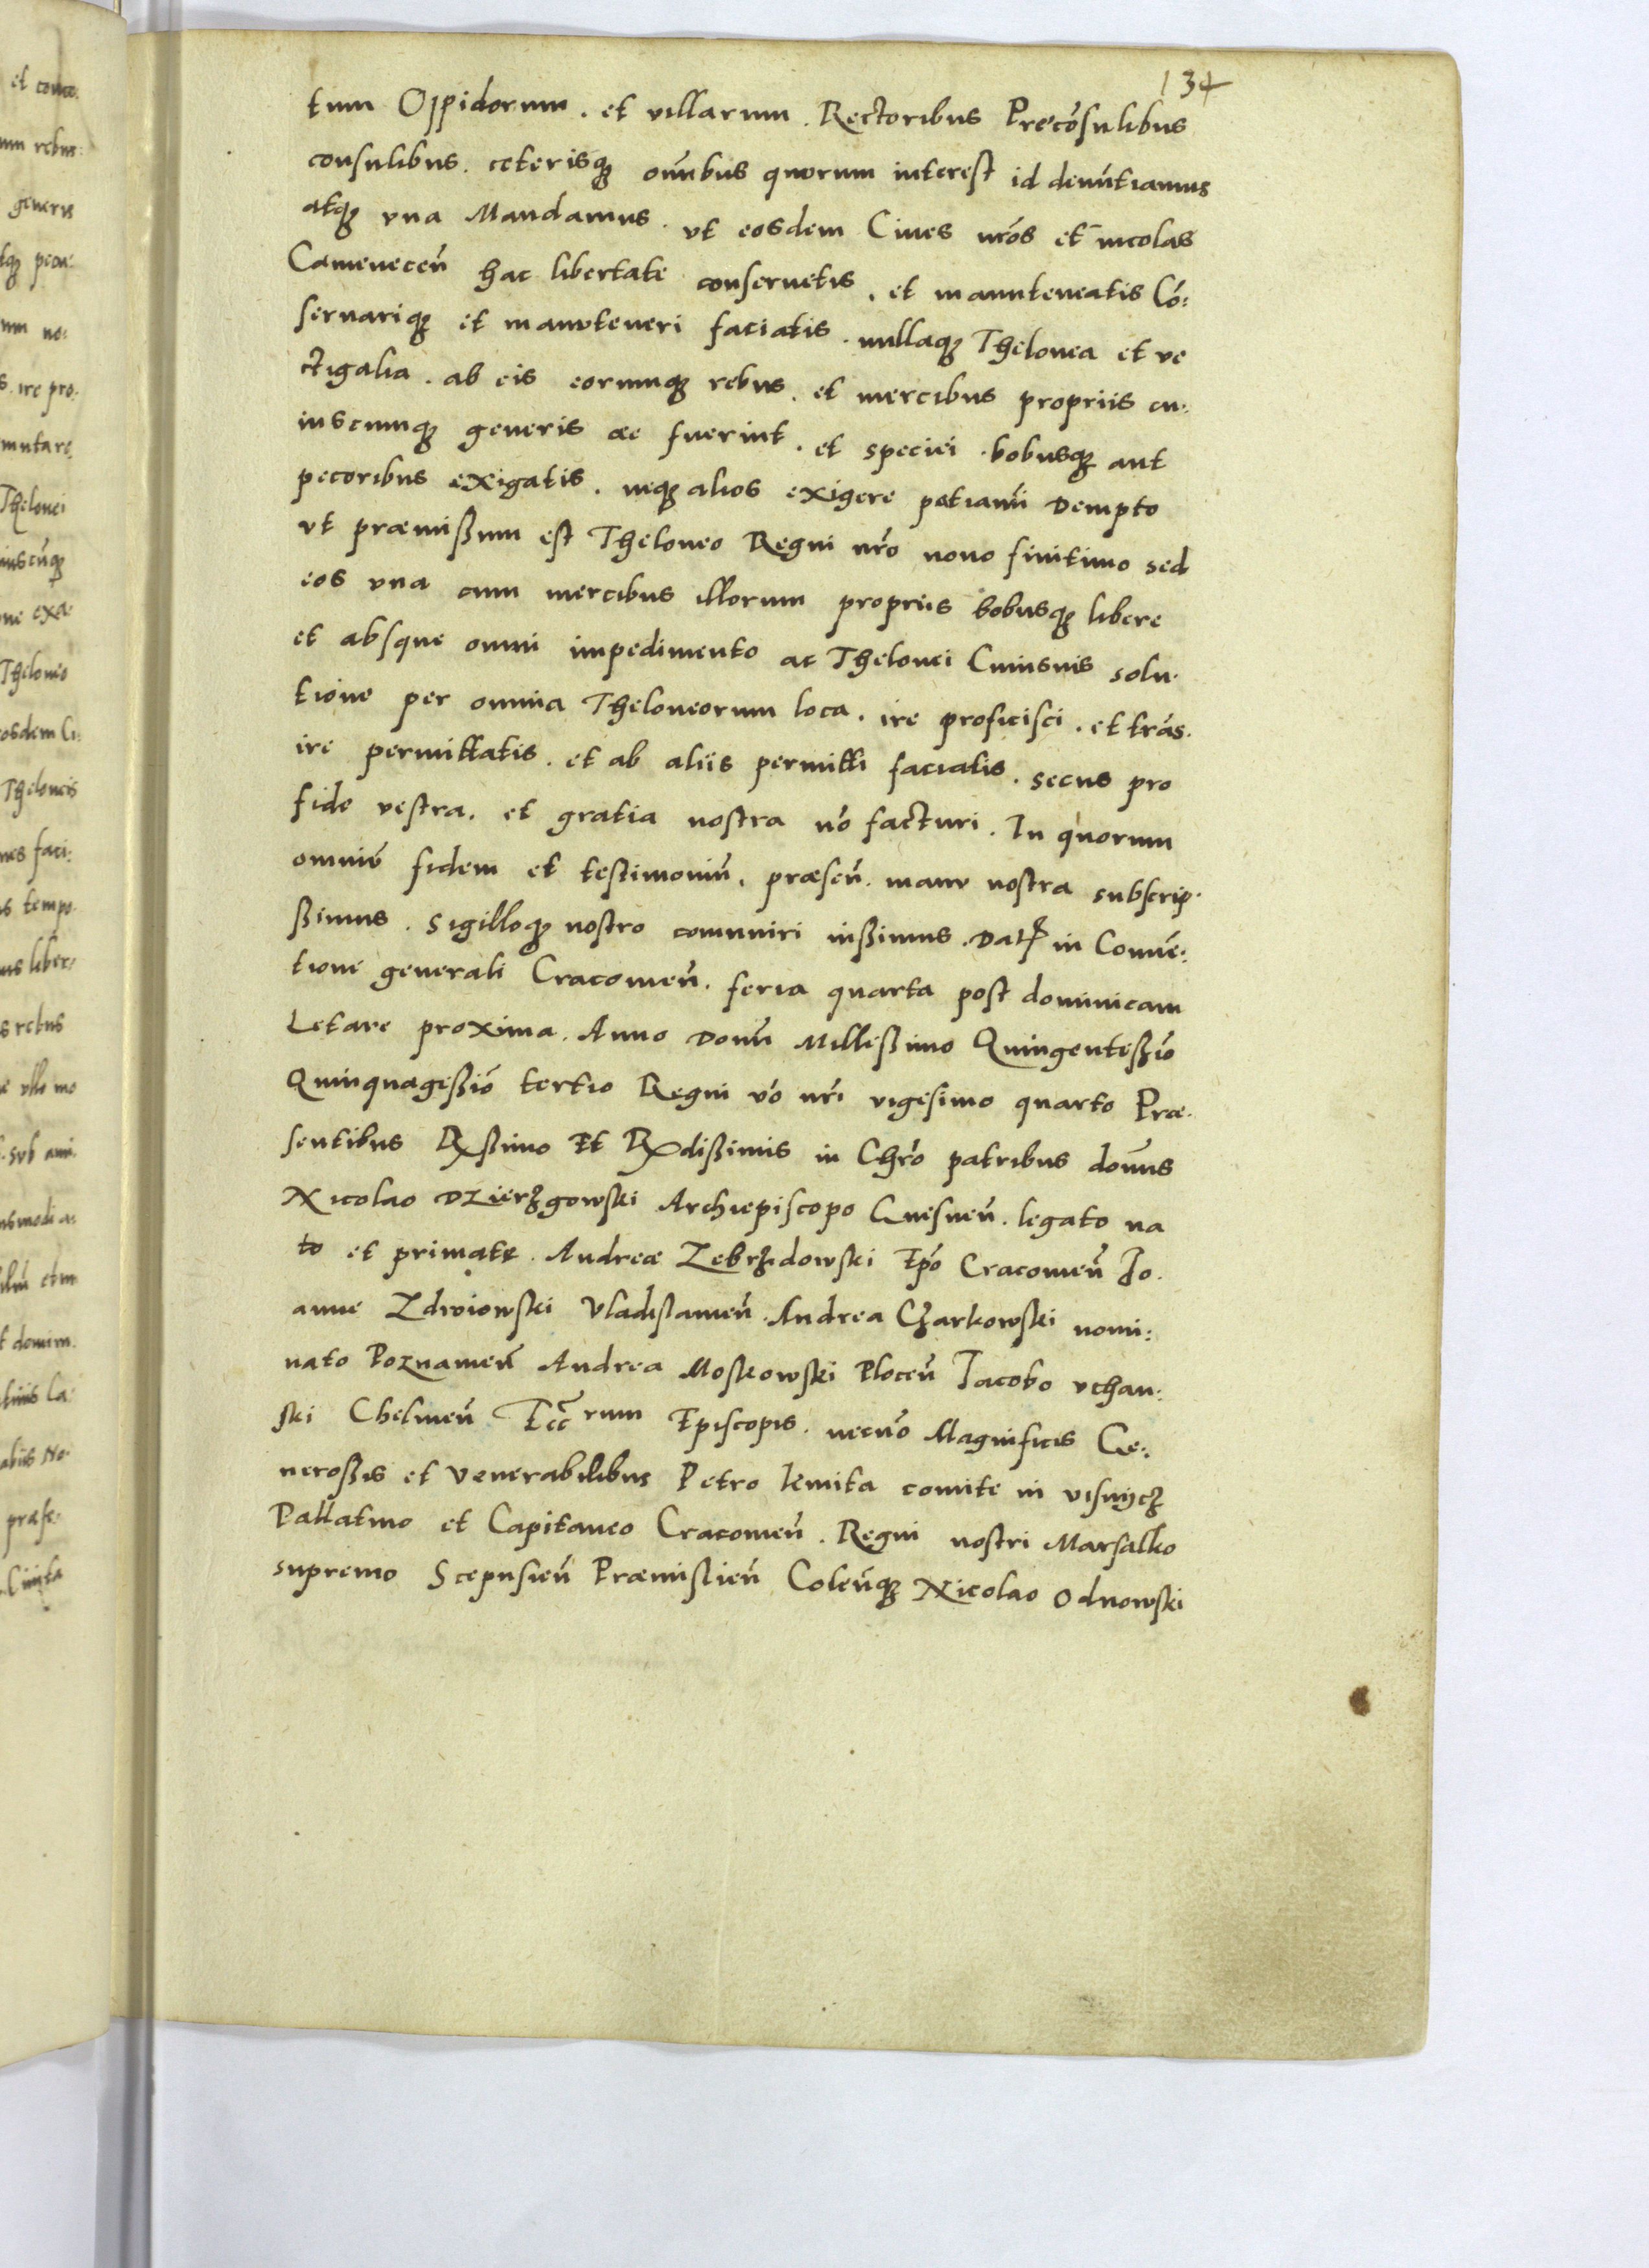 134
tum Oppidorum. et villarum. Rectoribus Precōsulibus
consulibus. ceterisq; om̄ibus quorum interest id denūtiamus
atq; vna Mandamus. vt eosdem Ciues nr̄os et incolas
Camenecen̄ hac libertate conseruetis, et manuteneatis Cō:
seruariq; et manuteneri faciatis. nullaq; Thelonea et ve
ctigalia. ab eis eorumq; rebus. et mercibus propriis cu:
iuscumq; generis ae fuerint. et speciei. bobusq; aut
pecoribus exigatis. neq; alios exigere patiamī Dempto
vt præmißum est Theloneo Regni nr̄o nouo finitimo sed
eos vna cum mercibus illorum propriis bobusq; libere
et absque omni impedimento ac Thelonei Cuiusuis solu.
tione per omnia Theloneorum loca. ire proficisci. et trās.
ire permittatis. et ab aliis permitti faciatis. secus pro
fide vestra. et gratia nostra nō facturi. In quorum
omniū fidem et testimoniū. præsen̄. manu nostra subscrip.
ßimus. sigilloq; nostro comuniri iußimus. Dat̄ in Conuē:
tione generali Cracouien̄. feria quarta post dominicam
Letare proxima. Anno Domī Milleßimo Quingenteßīo
Quinquageßīo tertio Regni vō nr̄i vigesimo quarto Præ.
sentibus Rßimo Et Rdißimis in Chrō patribus domīs
Nicolao Dzierzgowski Archiepiscopo Gnesnen̄. legato na
to et primate. Andreæ Zebrzidowski Epō Cracouien̄ Jo.
anne Zdroiowski Vladislauien̄. Andrea Czarkowski nomi:
nato Poznamen̄ Andrea Moskowski Plocen̄ Jacobo vchan:
ski Chelmen̄ Ecc̄rum Episcopis. necnō Magnificis Ge:
neroßis et Venerabilibus Petro kmita comite in visnicz
Pallatino et Capitaneo Cracouien̄. Regni nostri Marsalko
supremo Scepusien̄ Præmislien̄ Colen̄q; Nicolao Odnowski